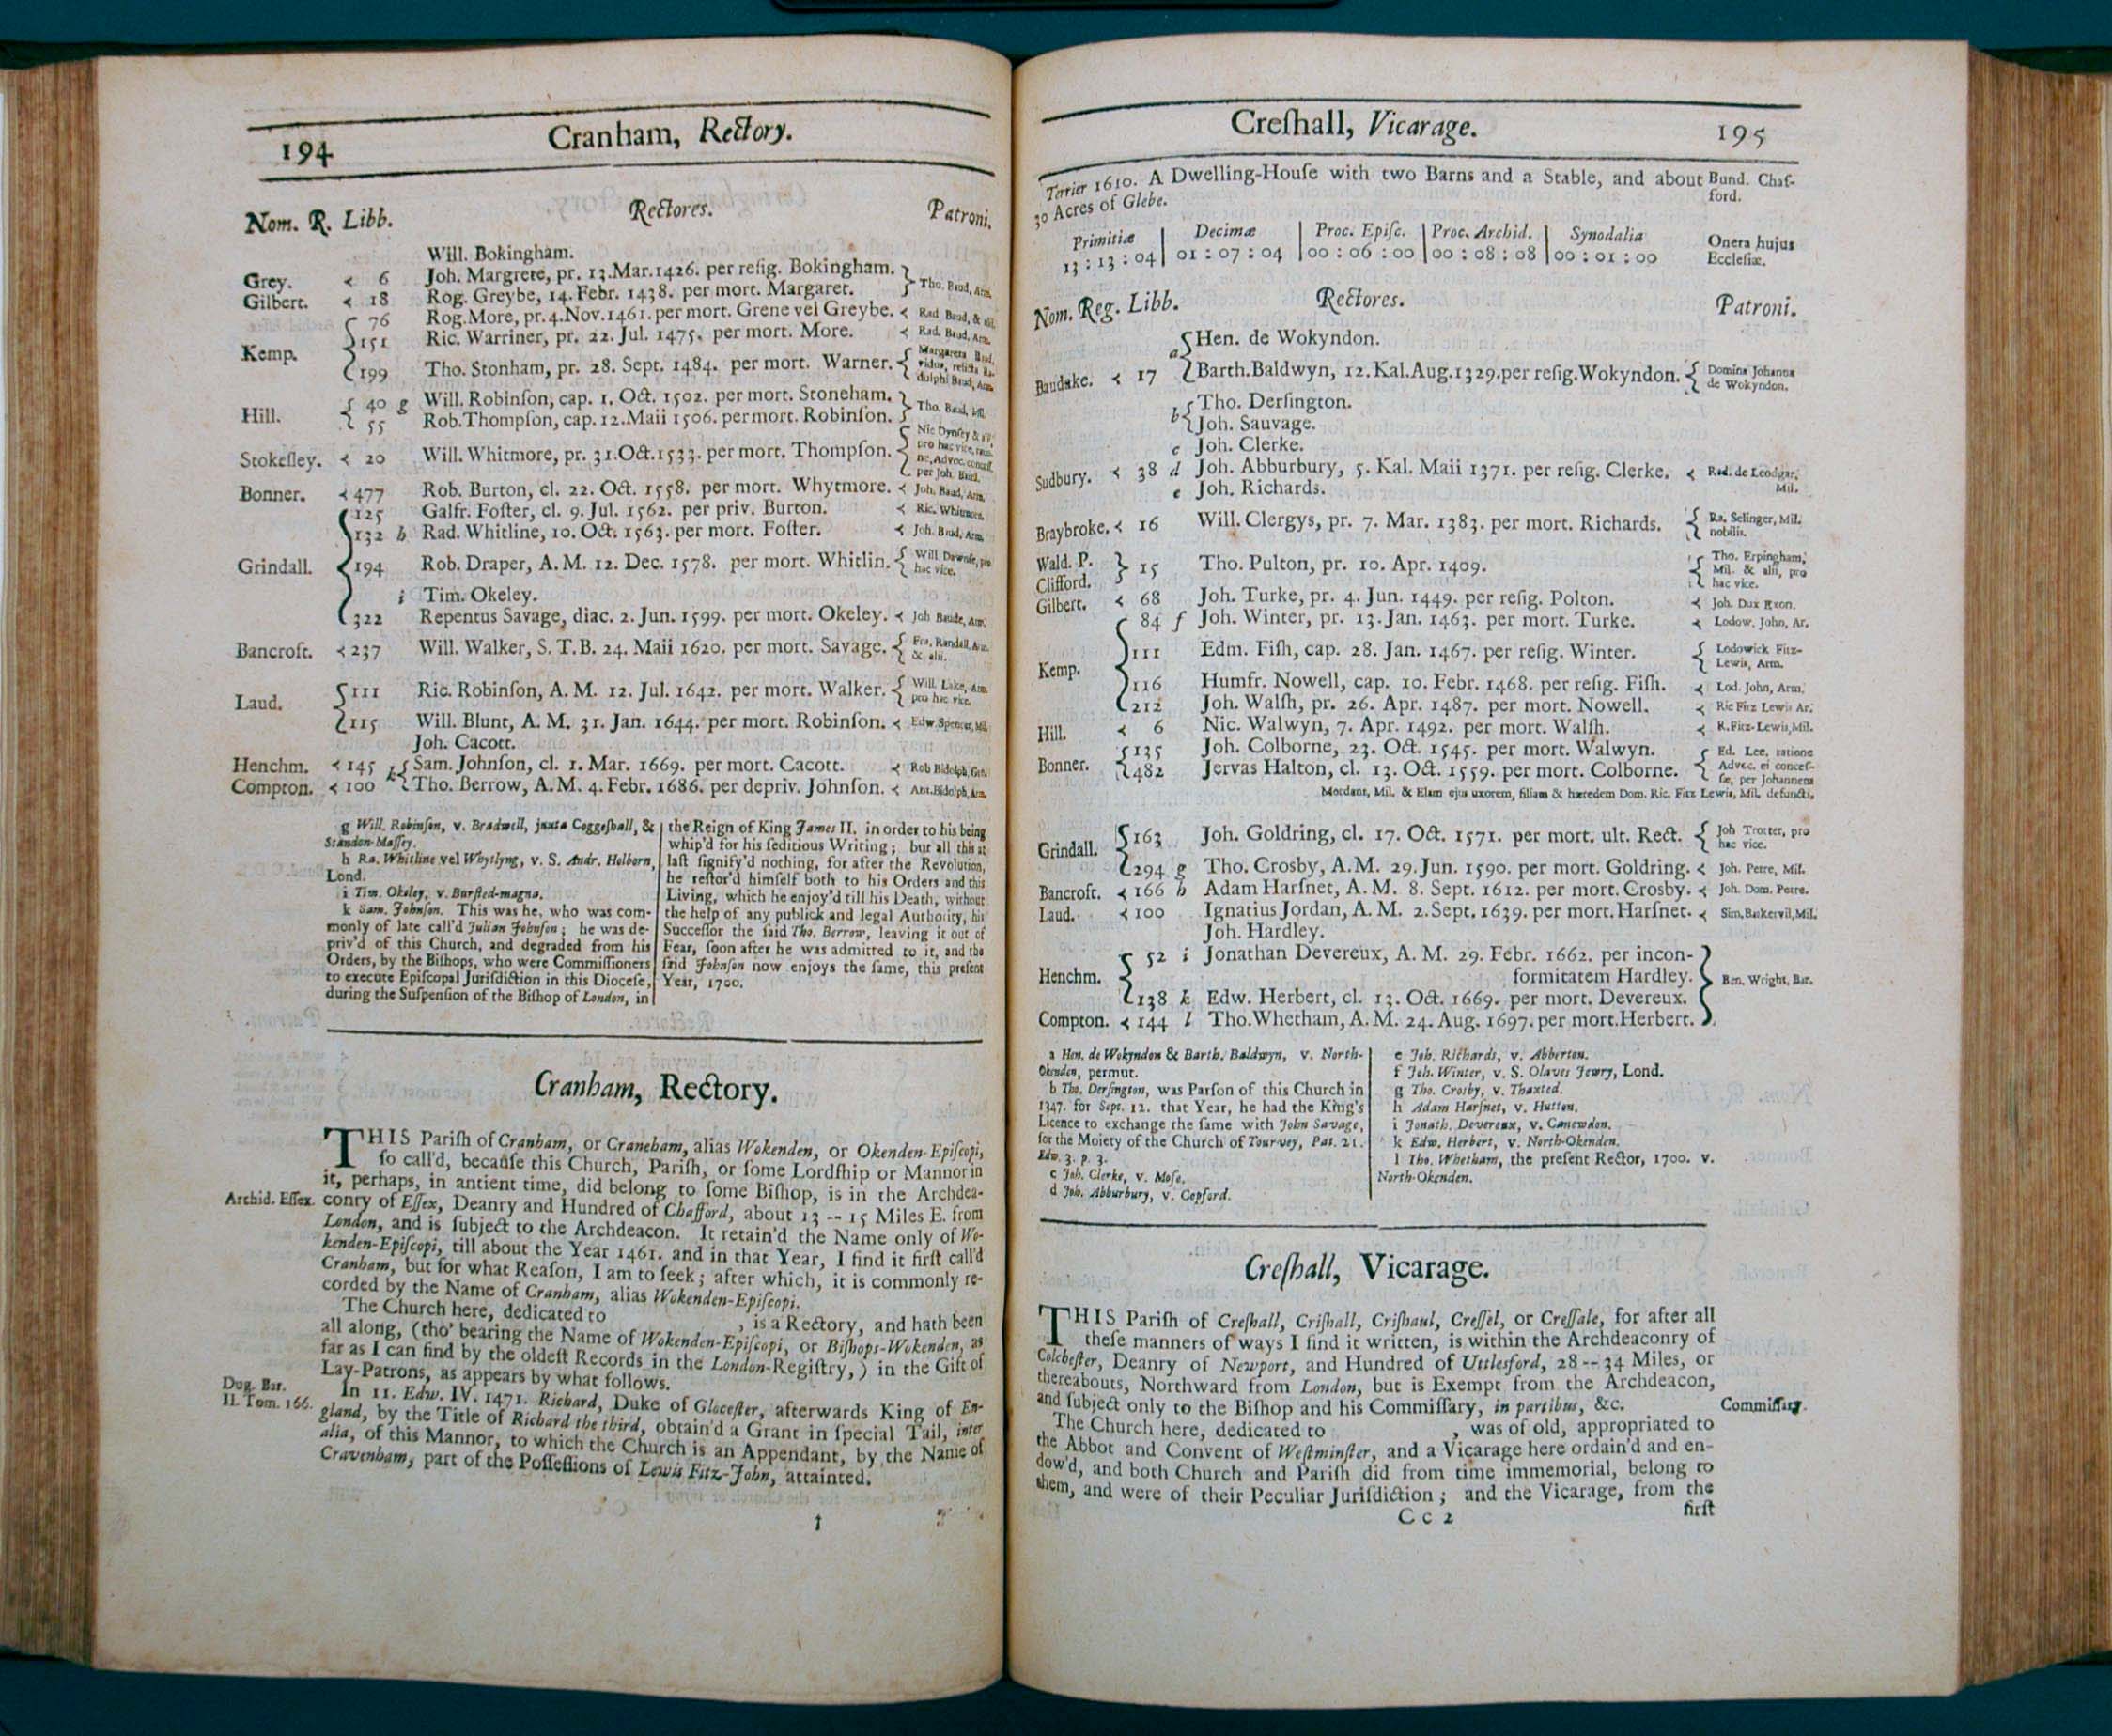 194 Cranham, Rectory.
Nom. R. Libb. Rectores. Patroni.
Will. Bokingham.
Grey. < 6 Joh. Margrete, pr. 13. Mar. 1426. per reſig. Bokingham. } Tho. Baud, Arm.
Gilbert. < 18 Rog. Greybe, 14. Febr. 1438. per mort. Margaret.
Kemp. { 76 Rog. More, pr. 4. Nov. 1461. per mort. Grene vel Greybe. < Rad Baud, & alii.
151 Ric. Warriner, pr. 22. Jul. 1475. per mort. More. < Rad. Baud, Arm.
199 Tho. Stonham, pr. 28. Sept. 1484. per mort. Warner. { Margareta Baud, vidua, relicta Radulphi Baud, Arm.
Hill. { 40 g Will. Robinſon, cap. 1. Oct. 1502. per mort. Stoneham. } Tho. Baud, Mil.
55 Rob. Thompſon, cap. 12. Maii 1506. per mort. Robinſon.
Stokeſley. < 20 Will. Whitmore, pr. 31. Oct. 1533. per mort. Thompſon. { Nic Dynſey & alii pro hac vice, ratione, Advoc. conceſſ. per Joh. Baud.
Bonner. < 477 Rob. Burton, cl. 22. Oct. 1558. per mort. Whytmore. < Joh. Baud, Arm.
Grindall. { 125 Galfr. Foſter, cl. 9. Jul. 1562. per priv. Burton. < Ric. Whitmore.
132 h Rad. Whitline, 10. Oct. 1563. per mort. Foſter. < Joh. Baud, Arm.
194 Rob. Draper, A. M. 12. Dec. 1578. per mort. Whitlin. { Will Dawnſe, pro hac vice.
i Tim. Okeley.
322 Repentus Savage, diac. 2. Jun. 1599. per mort. Okeley. < Joh Baude, Arm.
Bancroft. < 237 Will. Walker, S. T. B. 24. Maii 1620. per mort. Savage. { Fra. Randall, Arm. & alii.
Laud. { 111 Ric. Robinſon, A. M. 12. Jul. 1642. per mort. Walker. { Will. Lake, Arm. pro hac vice.
115 Will. Blunt, A. M. 31. Jan. 1644. per mort. Robinſon. < Edw. Spencer, Mil.
Joh. Cacott.
Henchm. < 145 k { Sam. Johnſon, cl. 1. Mar. 1669. per mort. Cacott. < Rob Bidolph, Gen.
Compton. < 100 Tho. Berrow, A. M. 4. Febr. 1686. per depriv. Johnſon. < Ant. Bidolph, Arm.
g Will. Robinſon, v. Bradwell, juxta Coggeſhall, &
Standon-Maſſey.
h Ra. Whitline vel Whytlyng, v. S. Andr. Holborn,
Lond.
i Tim. Okeley, v. Burſted-magna.
k Sam. Johnſon. This was he, who was com-
monly of late call'd Julian Johnſon; he was de-
priv'd of this Church, and degraded from his
Orders, by the Biſhops, who were Commiſſioners
to execute Epiſcopal Juriſdiction in this Dioceſe,
during the Suſpenſion of the Biſhop of London, in
the Reign of King James II. in order to his being
whip'd for his ſeditious Writing; but all this at
laſt ſignify'd nothing, for after the Revolution,
he reſtor'd himſelf both to his Orders and this
Living, which he enjoy'd till his Death, without
the help of any publick and legal Authority, his
Succeſſor the ſaid Tho. Berrow, leaving it out of
Fear, ſoon after he was admitted to it, and the
ſaid Johnſon now enjoys the ſame, this preſent
Year, 1700.
Cranham, Rectory.
THIS Pariſh of Cranham, or Craneham, alias Wokenden, or Okenden-Epiſcopi,
ſo call'd, becauſe this Church, Pariſh, or ſome Lordſhip or Mannor in
it, perhaps, in antient time, did belong to ſome Biſhop, is in the Archdea-
Archid. Eſſex. conry of Eſſex, Deanry and Hundred of Chafford, about 13 -- 15 Miles E. from
London, and is ſubject to the Archdeacon. It retain'd the Name only of Wo-
kenden-Epiſcopi, till about the Year 1461. and in that Year, I find it firſt call'd
Cranham, but for what Reaſon, I am to ſeek; after which, it is commonly re-
corded by the Name of Cranham, alias Wokenden-Epiſcopi.
The Church here, dedicated to , is a Rectory, and hath been
all along, (tho' bearing the Name of Wokenden-Epiſcopi, or Biſhops-Wokenden, as
far as I can find by the oldeſt Records in the London-Regiſtry,) in the Gift of
Lay-Patrons, as appears by what follows.
Dug. Bar. In 11. Edw. IV. 1471. Richard, Duke of Gloceſter, afterwards King of En-
II. Tom. 166. gland, by the Title of Richard the third, obtain'd a Grant in ſpecial Tail, inter
alia, of this Mannor, to which the Church is an Appendant, by the Name of
Cravenham, part of the Poſſeſſions of Lewis Fitz-John, attainted.
Creſhall, Vicarage. 195
Terrier 1610. A Dwelling-Houſe with two Barns and a Stable, and about Bund. Chaf-
30 Acres of Glebe. ford.
Primitiæ | Decimæ | Proc. Epiſc. | Proc. Archid. | Synodalia Onera hujus
13 : 13 : 04 | 01 : 07 : 04 | 00 : 06 : 00 | 00 : 08 : 08 | 00 : 01 : 00 Eccleſiæ.
Nom. Reg. Libb. Rectores. Patroni.
a { Hen. de Wokyndon.
Baudake. < 17 Barth. Baldwyn, 12. Kal. Aug. 1329. per reſig. Wokyndon. { Domina Johanna de Wokyndon.
b { Tho. Derſington.
Joh. Sauvage.
c Joh. Clerke.
Sudbury. < 38 d Joh. Abburbury, 5. Kal. Maii 1371. per reſig. Clerke. < Rad. de Leodgar, Mil.
e Joh. Richards.
Braybroke. < 16 Will. Clergys, pr. 7. Mar. 1383. per mort. Richards. { Ra. Selinger, Mil. nobilis.
Wald. P. Clifford. } 15 Tho. Pulton, pr. 10. Apr. 1409. { Tho. Erpingham, Mil. & alii, pro hac vice.
Gilbert. < 68 Joh. Turke, pr. 4. Jun. 1449. per reſig. Polton. < Joh. Dux Exon.
Kemp. { 84 f Joh. Winter, pr. 13. Jan. 1463. per mort. Turke. < Lodow. John, Ar.
111 Edm. Fiſh, cap. 28. Jan. 1467. per reſig. Winter. { Lodowick Fitz-Lewis, Arm.
116 Humfr. Nowell, cap. 10. Febr. 1468. per reſig. Fiſh. < Lod. John, Arm.
212 Joh. Walſh, pr. 26. Apr. 1487. per mort. Nowell. < Ric Fitz Lewis Ar.
Hill. < 6 Nic. Walwyn, 7. Apr. 1492. per mort. Walſh. < R. Fitz-Lewis, Mil.
Bonner. { 135 Joh. Colborne, 23. Oct. 1545. per mort. Walwyn. { Ed. Lee, ratione
482 Jervas Halton, cl. 13. Oct. 1559. per mort. Colborne. Advoc. ei conceſ-
ſæ, per Johannem
Mordant, Mil. & Elam ejus uxorem, filiam & hæredem Dom. Ric. Fitz Lewis, Mil. defuncti.
Grindall. { 163 Joh. Goldring, cl. 17. Oct. 1571. per mort. ult. Rect. { Joh Trotter, pro hac vice.
294 g Tho. Crosby, A. M. 29. Jun. 1590. per mort. Goldring. < Joh. Petre, Mil.
Bancroft. < 166 h Adam Harſnet, A. M. 8. Sept. 1612. per mort. Crosby. < Joh. Dom. Petre.
Laud. < 100 Ignatius Jordan, A. M. 2. Sept. 1639. per mort. Harſnet. < Sim. Baskervil, Mil.
Joh. Hardley.
Henchm. { 52 i Jonathan Devereux, A. M. 29. Febr. 1662. per incon-
formitatem Hardley. } Ben. Wright, Bar.
138 k Edw. Herbert, cl. 13. Oct. 1669. per mort. Devereux.
Compton. < 144 l Tho. Whetham, A. M. 24. Aug. 1697. per mort. Herbert.
a Hen. de Wokyndon & Barth. Baldwyn, v. North-
Okenden, permut.
b Tho. Derſington, was Parſon of this Church in
1347. for Sept. 12. that Year, he had the King's
Licence to exchange the ſame with John Savage,
for the Moiety of the Church of Tourvey, Pat. 21.
Edw. 3. p. 3.
c Joh. Clerke, v. Moſe.
d Joh. Abburbury, v. Copford.
e Joh. Richards, v. Abberton.
f Joh. Winter, v. S. Olaves Jewry, Lond.
g Tho. Crosby, v. Thaxted.
h Adam Harſnet, v. Hutton.
i Jonath. Devereux, v. Canewdon.
k Edw. Herbert, v. North-Okenden.
l Tho. Whetham, the preſent Rector, 1700. v.
North-Okenden.
Creſhall, Vicarage.
THIS Pariſh of Creſhall, Criſhall, Criſhaul, Creſſel, or Creſſale, for after all
theſe manners of ways I find it written, is within the Archdeaconry of
Colcheſter, Deanry of Newport, and Hundred of Uttlesford, 28 -- 34 Miles, or
thereabouts, Northward from London, but is Exempt from the Archdeacon,
and ſubject only to the Biſhop and his Commiſſary, in partibus, &c. Commiſſary.
The Church here, dedicated to , was of old, appropriated to
the Abbot and Convent of Weſtminſter, and a Vicarage here ordain'd and en-
dow'd, and both Church and Pariſh did from time immemorial, belong to
them, and were of their Peculiar Juriſdiction; and the Vicarage, from the
C c 2 firſt